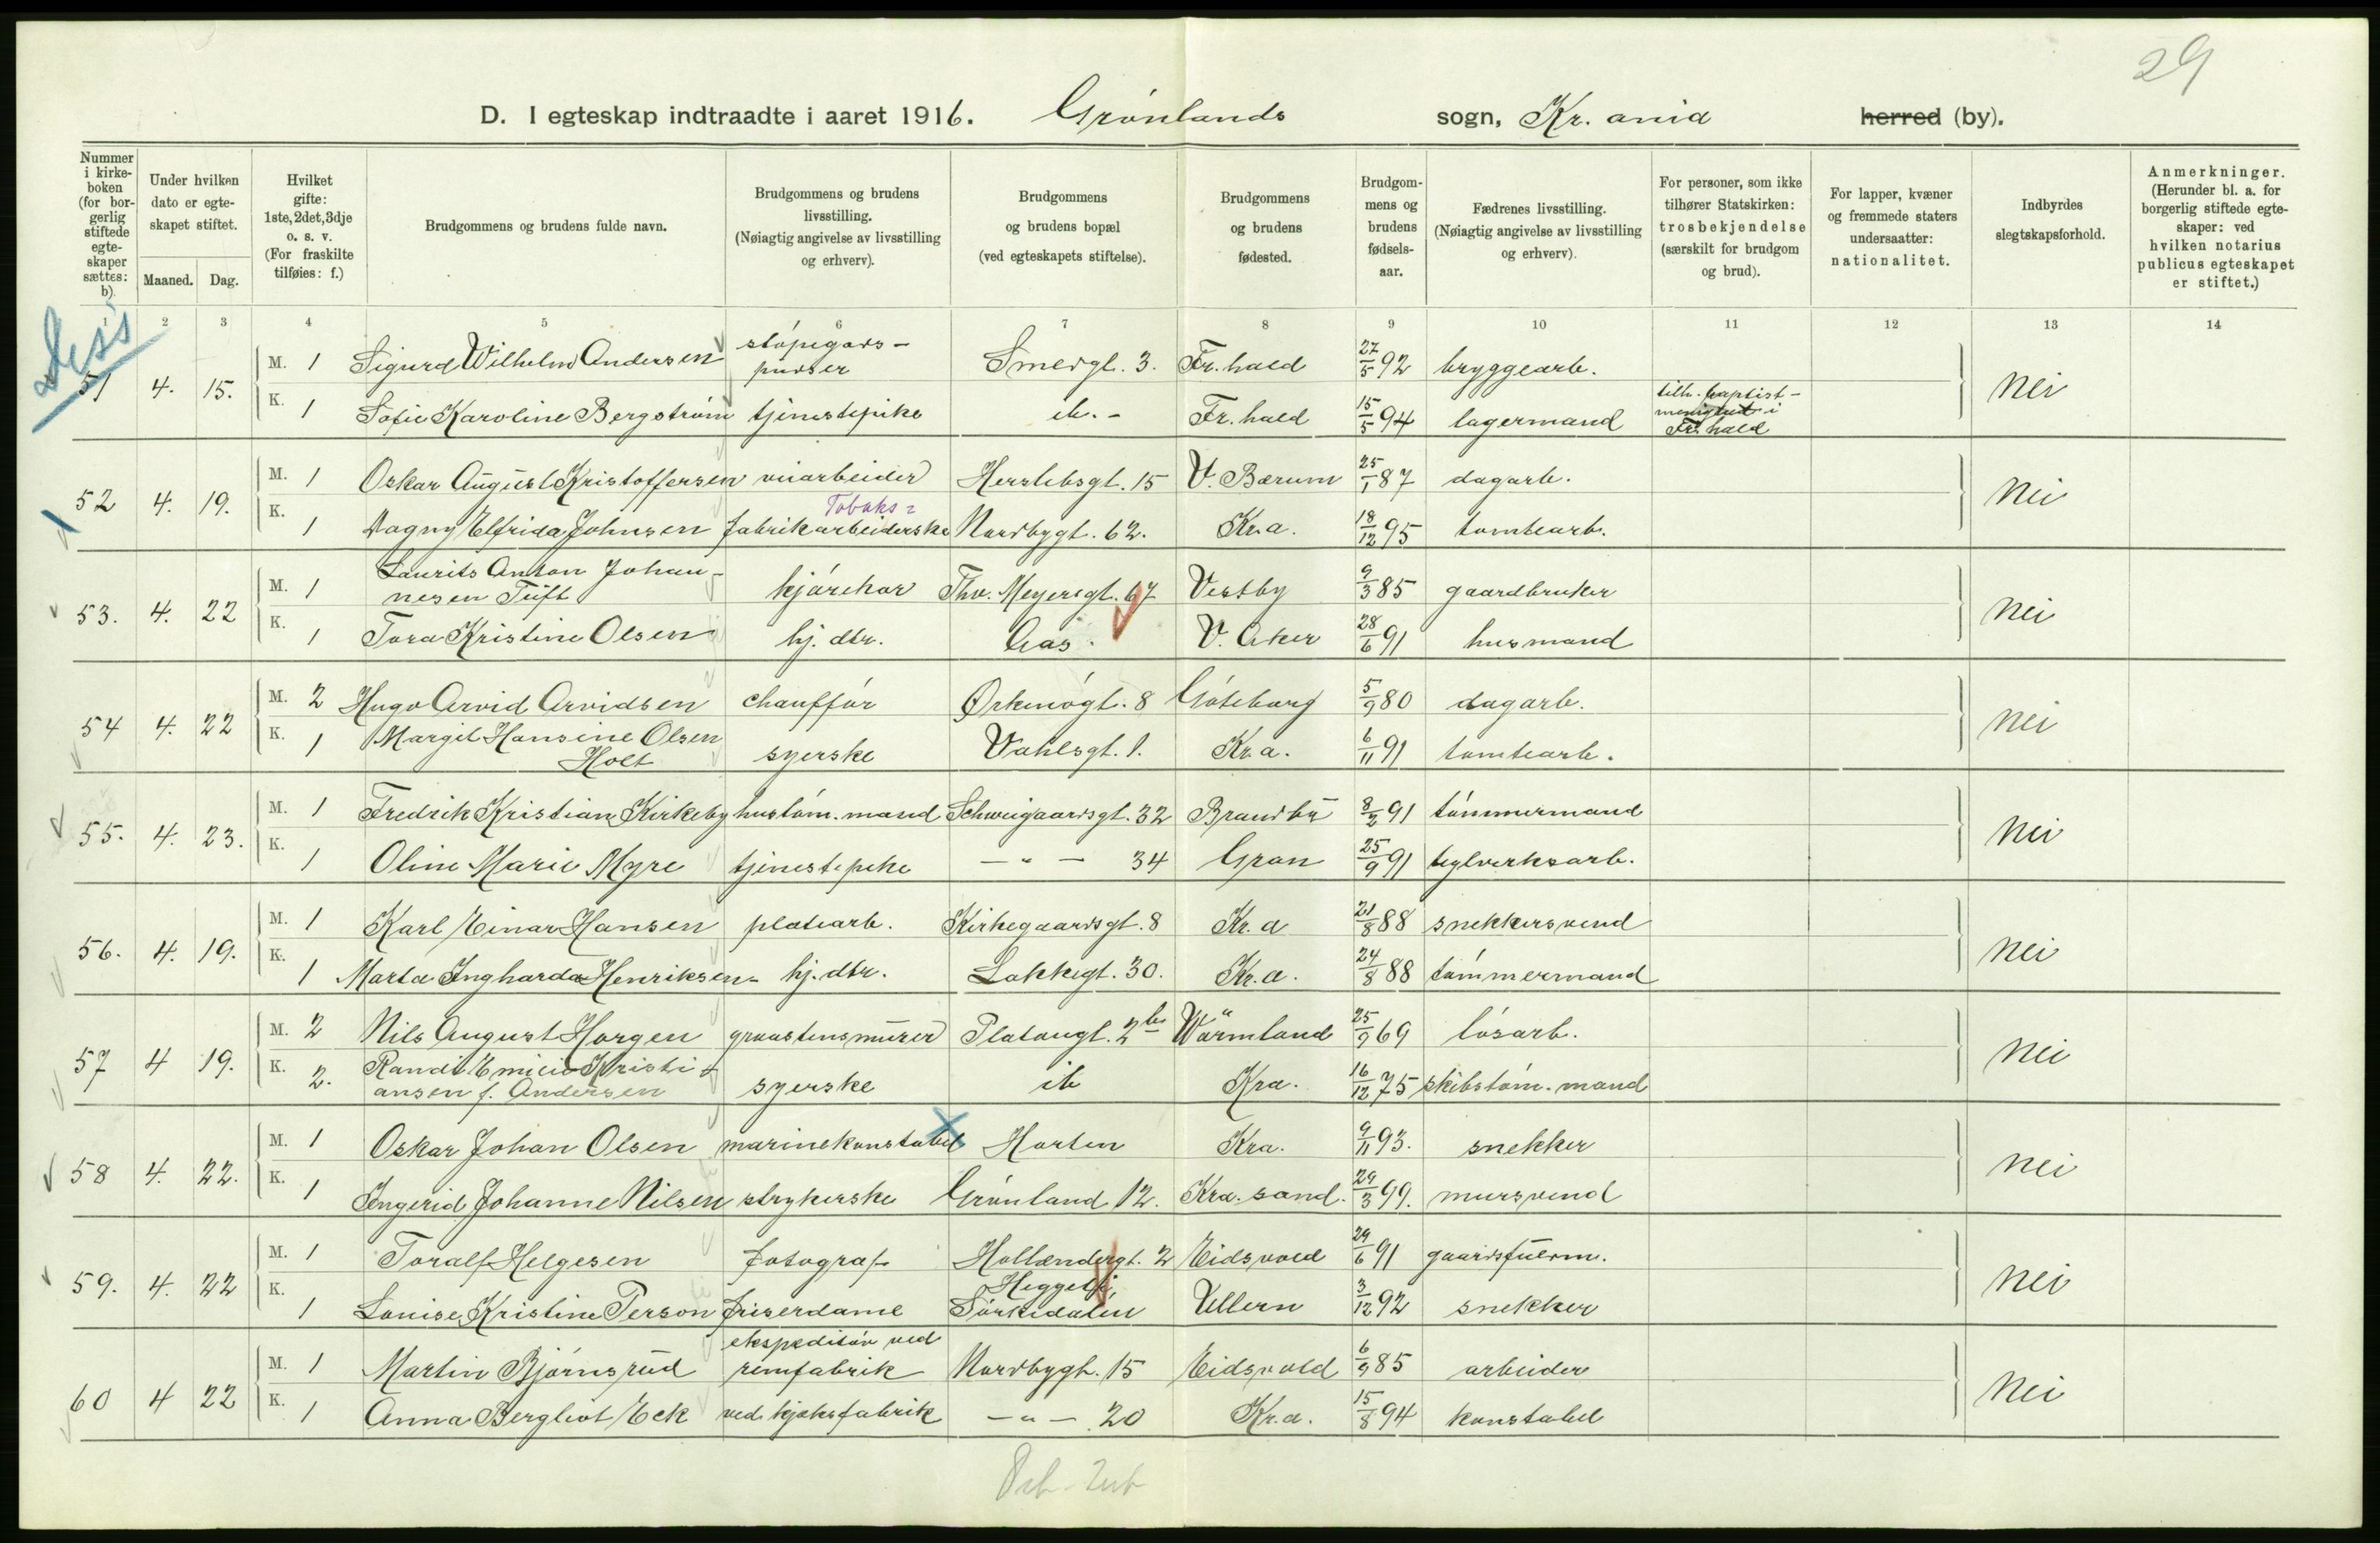 29
D. I egteskap indtraadte i aaret 1916. Grønlands sogn, Kr.ania herred (by).
Nummer i kirke-boken (for bor-gerlig stiftede egte-skaper sættes: b).
Under hvilken dato er egte-skapet stiftet.
Maaned. Dag.
Hvilket gifte: 1ste, 2det, 3dje o. s. v. (For fraskilte tilføies: f.)
Brudgommens og brudens fulde navn.
Brudgommens og brudens livsstilling. (Nøiagtig angivelse av livsstilling og erhverv).
Brudgommens og brudens bopæl (ved egteskapets stiftelse).
Brudgommens og brudens fødested.
Brudgom-mens og brudens fødsels-aar.
Fædrenes livsstilling. (Nøiagtig angivelse av livsstilling og erhverv).
For personer, som ikke tilhører Statskirken: trosbekjendelse (særskilt for brudgom og brud).
For lapper, kvæner og fremmede staters undersaatter: nationalitet.
Indbyrdes slegtskapsforhold.
Anmerkninger. (Herunder bl. a. for borgerlig stiftede egte-skaper: ved hvilken notarius publicus egteskapet er stiftet.)
1 2 3 4 5 6 7 8 9 10 11 12 13 14
51 4. 15. M. 1 Sigurd Wilhelm Andersen støpegods-pudser Smedgt. 3. Fr.hald 27/5 92 bryggearb. Nei
K. 1 Sofie Karoline Bergstrøm tjenestepike do. - Fr.hald 15/5 94 lagermand tilh. baptist-menighet i Fr.hald
52 4. 19. M. 1 Oskar August Kristoffersen veiarbeider Herslebsgt. 15 V. Bærum 25/1 87 dagarb. Nei
K. 1 Dagny Elfrida Johnsen Tobaks= fabrikarbeiderske Nordbygt. 62. Kr.a. 18/12 95 tomtearb.
53. 4. 22 M. 1 Laurits Anton Johan-nesen Tuft kjørekar Thv. Meyersgt. 67 Vestby 9/3 85 gaardbruker Nei
K. 1 Tora Kristine Olsen hj. dtr. Aas. V. Aker 28/6 91 husmand
54 4. 22 M. 2 Hugo Arvid Arvidsen chauffør Ørkenøgt. 8 Göteborg 5/9 80 dagarb. Nei
K. 1 Margit Hansine Olsen Holt syerske Vahlsgt. 1. Kr.a. 6/11 91 tomtearb.
55. 4. 23. M. 1 Fredrik Kristian Kirkeby hustøm.mand Schweigaardsgt. 32 Brandbu 8/2 91 tømmermand Nei
K. 1 Oline Marie Myre tjenestepike - " - 34 Gran 25/9 91 teglverksarb.
56. 4. 19. M. 1 Karl Einar Hansen platearb. Kirkegaardsgt. 8 Kr.a 21/8 88 snekkersvend Nei
K. 1 Marta Ingharda Henriksen hj.dtr. Lakkegt. 30. Kr.a. 24/8 88 tømmermand
57 4 19. M. 2 Nils August Horgen graastensmurer Platougt. 2b Wärmland 25/9 69 løsarb. Nei
K. 2. Randi Emicie Kristi-ansen f. Andersen syerske ib Kra. 16/12 75 skibstøm.mand
58 4. 22. M. 1 Oskar Johan Olsen marinekonstabel Horten Kra. 9/11 93. snekker Nei
K. 1 Ingerid Johanne Nilsen strykerske Grønland 12. Kra.sand. 29/3 99. mursvend
59. 4. 22 M. 1 Toralf Helgesen fotograf Hollendergt. 2 Eidsvold 29/6 91 gaardsfuldm. Nei
K. 1 Louise Kristine Person friserdame Heggeli Sørkedalen Ullern 3/12 92 snekker
60 4 22 M. 1 Martin Bjørnsrud ekspeditør ved remfabrik Nordbygt. 15 Eidsvold 6/9 85 arbeider Nei
K. 1 Anna Bergliot Eck ved kjeksfabrik - " - 20 Kr.a. 15/8 94 konstabel